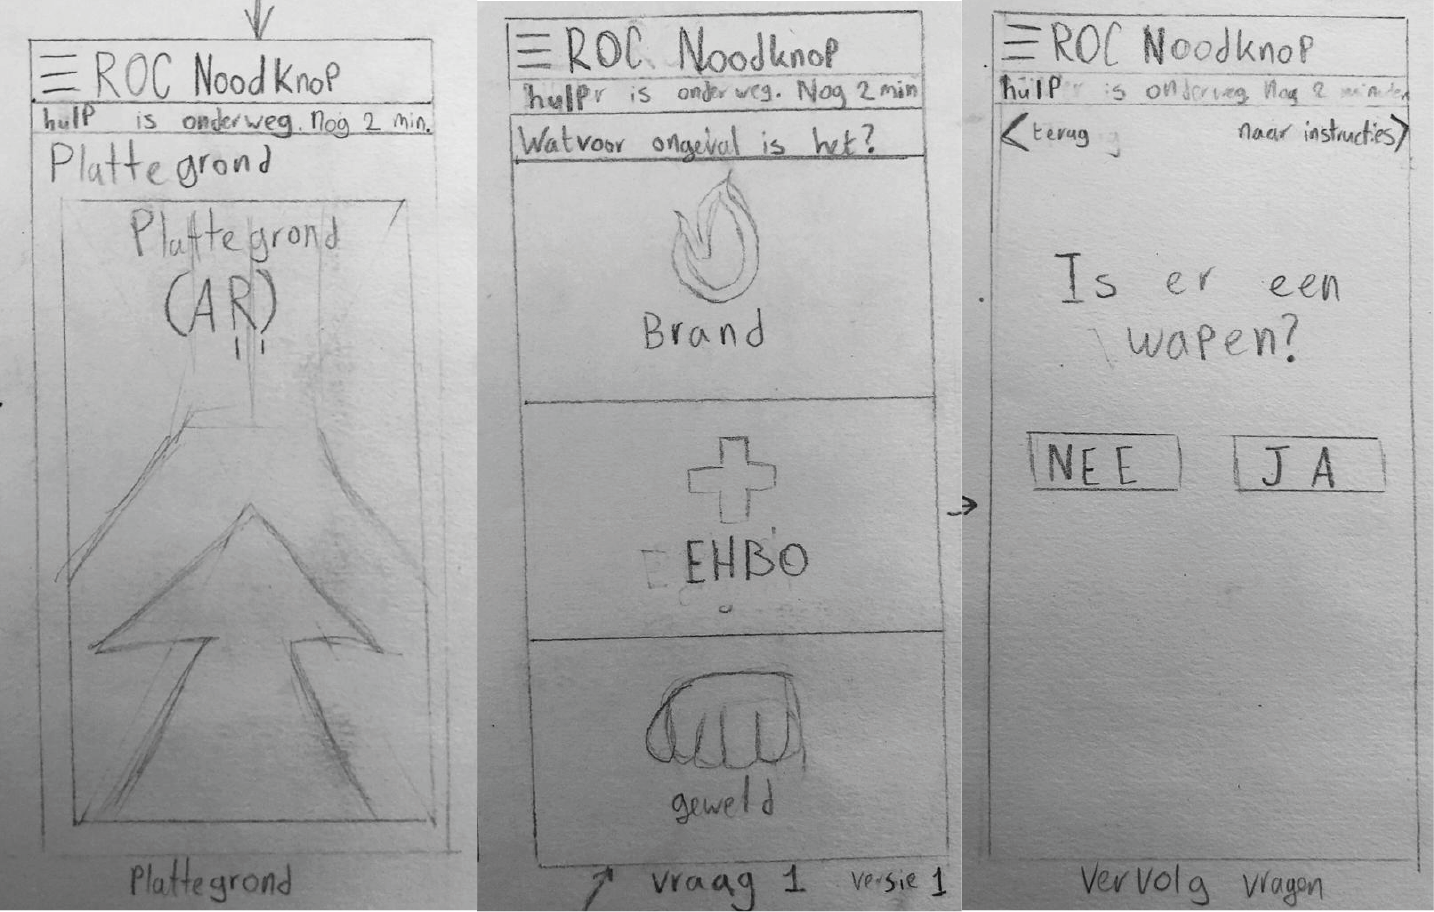 ROC NoodKnop
hulp is onderweg. nog 2 min.
Plattegrond
Plattegrond
(AR)
Plattegrond
ROC Noodknop
hulp is onderweg. Nog 2 min
Wat voor ongeval is het?
Brand
EHBO
geweld
vraag 1 versie 1
ROC Noodknop
hulp is onderweg Nog 2 minuten
terug naar instructies
Is er een
wapen?
NEE JA
Vervolg vragen